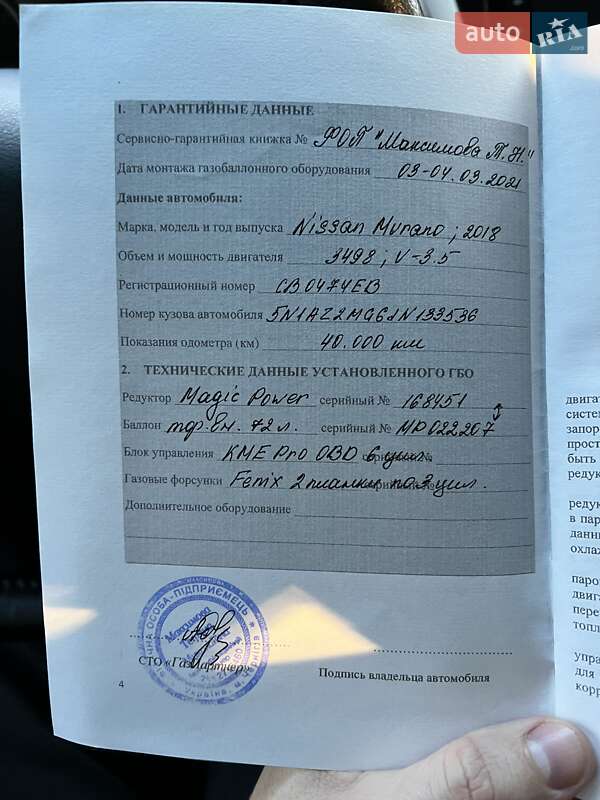 auto RIA .com
1. ГАРАНТИЙНЫЕ ДАННЫЕ
Сервисно-гарантийная книжка № ФОП "Максимова Т.Н."
Дата монтажа газобаллонного оборудования 03-04.03.2021
Данные автомобиля:
Марка, модель и год выпуска Nissan Murano; 2018
Объем и мощность двигателя 3498; V-3.5
Регистрационный номер CB0474EB
Номер кузова автомобиля 5N1AZ2MG6JN133536
Показания одометра (км) 40.000 км
2. ТЕХНИЧЕСКИЕ ДАННЫЕ УСТАНОВЛЕННОГО ГБО
Редуктор Magic Power серийный № 168451
Баллон тор.вн. 72 л. серийный № МР022207
Блок управления KME Pro OBD 6 цил. серийный №
Газовые форсунки Fenix 2 планки по 3 цил.
Дополнительное оборудование
ОСОБА-ПІДПРИЄМЕЦЬ
Максимова
Україна, м. Чернігів
СТО «ГазПартнер»
Подпись владельца автомобиля
4
двига
систем
запор
прост
быть
редук
редук
в пар
данн
охла
паро
двига
пере
топл
упра
для
корр